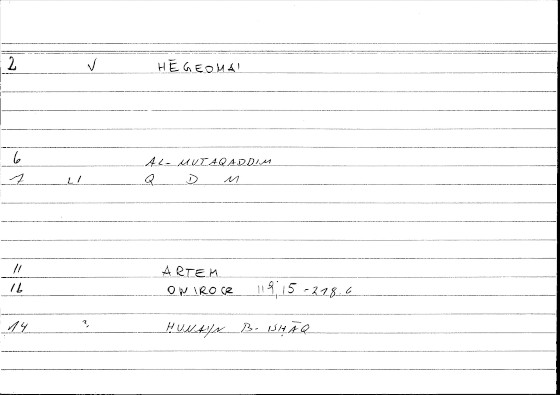 2 V HĒGEOMAI
6 AL-MUTAQADDIM
7 LI Q D M
11 ARTEM
16 ONIROCR 119,15-218.6
14 ? HUNAYN B-ISHĀQ